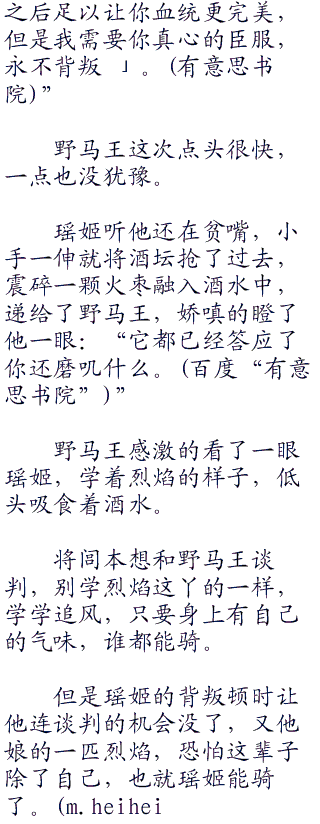 之后足以让你血统更完美，
但是我需要你真心的臣服，
永不背叛 」。(有意思书
院)”
野马王这次点头很快，
一点也没犹豫。
瑶姬听他还在贫嘴，小
手一伸就将酒坛抢了过去，
震碎一颗火枣融入酒水中，
递给了野马王，娇嗔的瞪了
他一眼：“它都已经答应了
你还磨叽什么。(百度“有意
思书院”)”
野马王感激的看了一眼
瑶姬，学着烈焰的样子，低
头吸食着酒水。
将闾本想和野马王谈
判，别学烈焰这丫的一样，
学学追风，只要身上有自己
的气味，谁都能骑。
但是瑶姬的背叛顿时让
他连谈判的机会没了，又他
娘的一匹烈焰，恐怕这辈子
除了自己，也就瑶姬能骑
了。(m.heihei